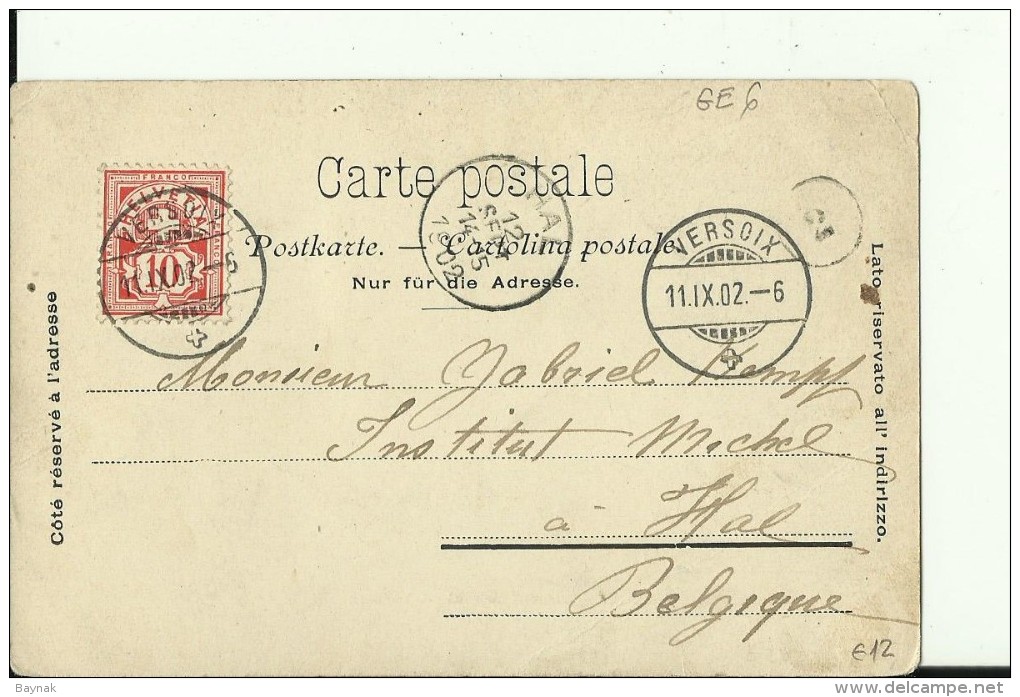 GE 6
Carte postale
Postkarte. — Cartolina postale.
Nur für die Adresse.
Côté réservé à l'adresse
Lato riservato all' indirizzo.
FRANCO
HELVETIA
10
VERSOIX
11.IX.02.–6
HAL
12
SEPT
14-35
1902
VERSOIX
11.IX.02.–6
Monsieur Gabriel Kempf
Institut Michel
à Hal
Belgique
€12
Baynak
www.delcampe.net